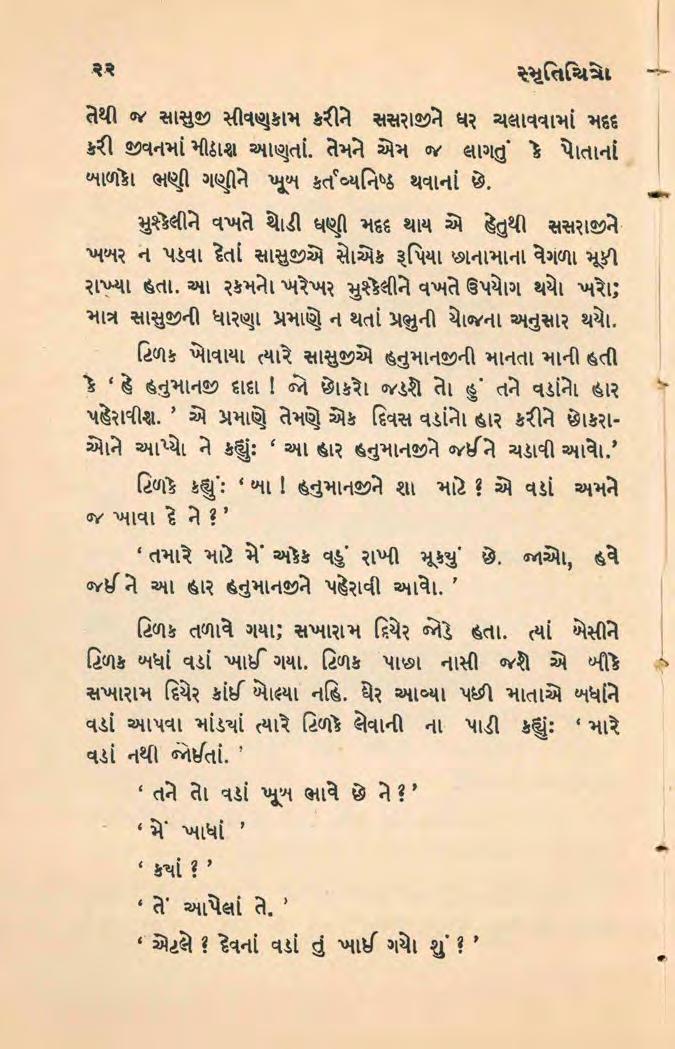 ૨૨ સ્મૃતિચિત્રો
તેથી જ સાસુજી સીવણકામ કરીને સસરાજીને ઘર ચલાવવામાં મદદ
કરી જીવનમાં મીઠાશ આણતાં. તેમને એમ જ લાગતું કે પોતાનાં
બાળકો ભણી ગણીને ખૂબ કર્તવ્યનિષ્ઠ થવાનાં છે.
મુશ્કેલીને વખતે થોડી ઘણી મદદ થાય એ હેતુથી સસરાજીને
ખબર ન પડવા દેતાં સાસુજીએ સોએક રૂપિયા છાનામાના વેગળા મૂકી
રાખ્યા હતા. આ રકમનો ખરેખર મુશ્કેલીને વખતે ઉપયોગ થયો ખરો;
માત્ર સાસુજીની ધારણા પ્રમાણે ન થતાં પ્રભુની યોજના અનુસાર થયો.
ટિળક ખોવાયા ત્યારે સાસુજીએ હનુમાનજીની માનતા માની હતી
કે ‘હે હનુમાનજી દાદા ! જો છોકરો જડશે તો હું તને વડાંનો હાર
પહેરાવીશ. ’ એ પ્રમાણે તેમણે એક દિવસ વડાંનો હાર કરીને છોકરા-
ઓને આપ્યો ને કહ્યુંઃ ‘ આ હાર હનુમાનજીને જઈને ચડાવી આવો.’
ટિળકે કહ્યુંઃ ‘બા ! હનુમાનજીને શા માટે ? એ વડાં અમને
જ ખાવા દે ને ?’
‘તમારે માટે મેં અકેક વડું રાખી મૂક્યું છે. જાઓ, હવે
જઈને આ હાર હનુમાનજીને પહેરાવી આવો. ’
ટિળક તળાવે ગયા; સખારામ દિયેર જોડે હતા. ત્યાં બેસીને
ટિળક બધાં વડાં ખાઈ ગયા. ટિળક પાછા નાસી જશે એ બીકે
સખારામ દિયેર કાંઈ બોલ્યા નહિ. ઘેર આવ્યા પછી માતાએ બધાંને
વડાં આપવા માંડ્યાં ત્યારે ટિળકે લેવાની ના પાડી કહ્યુંઃ ‘મારે
વડાં નથી જોઈતાં. ’
‘ તને તો વડાં ખૂબ ભાવે છે ને ?’
‘ મેં ખાધાં ’
‘ ક્યાં ? ’
‘ તેં આપેલાં તે. ’
‘ એટલે ? દેવનાં વડાં તું ખાઈ ગયો શું ? ’